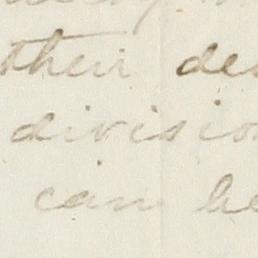 their de
division
can be